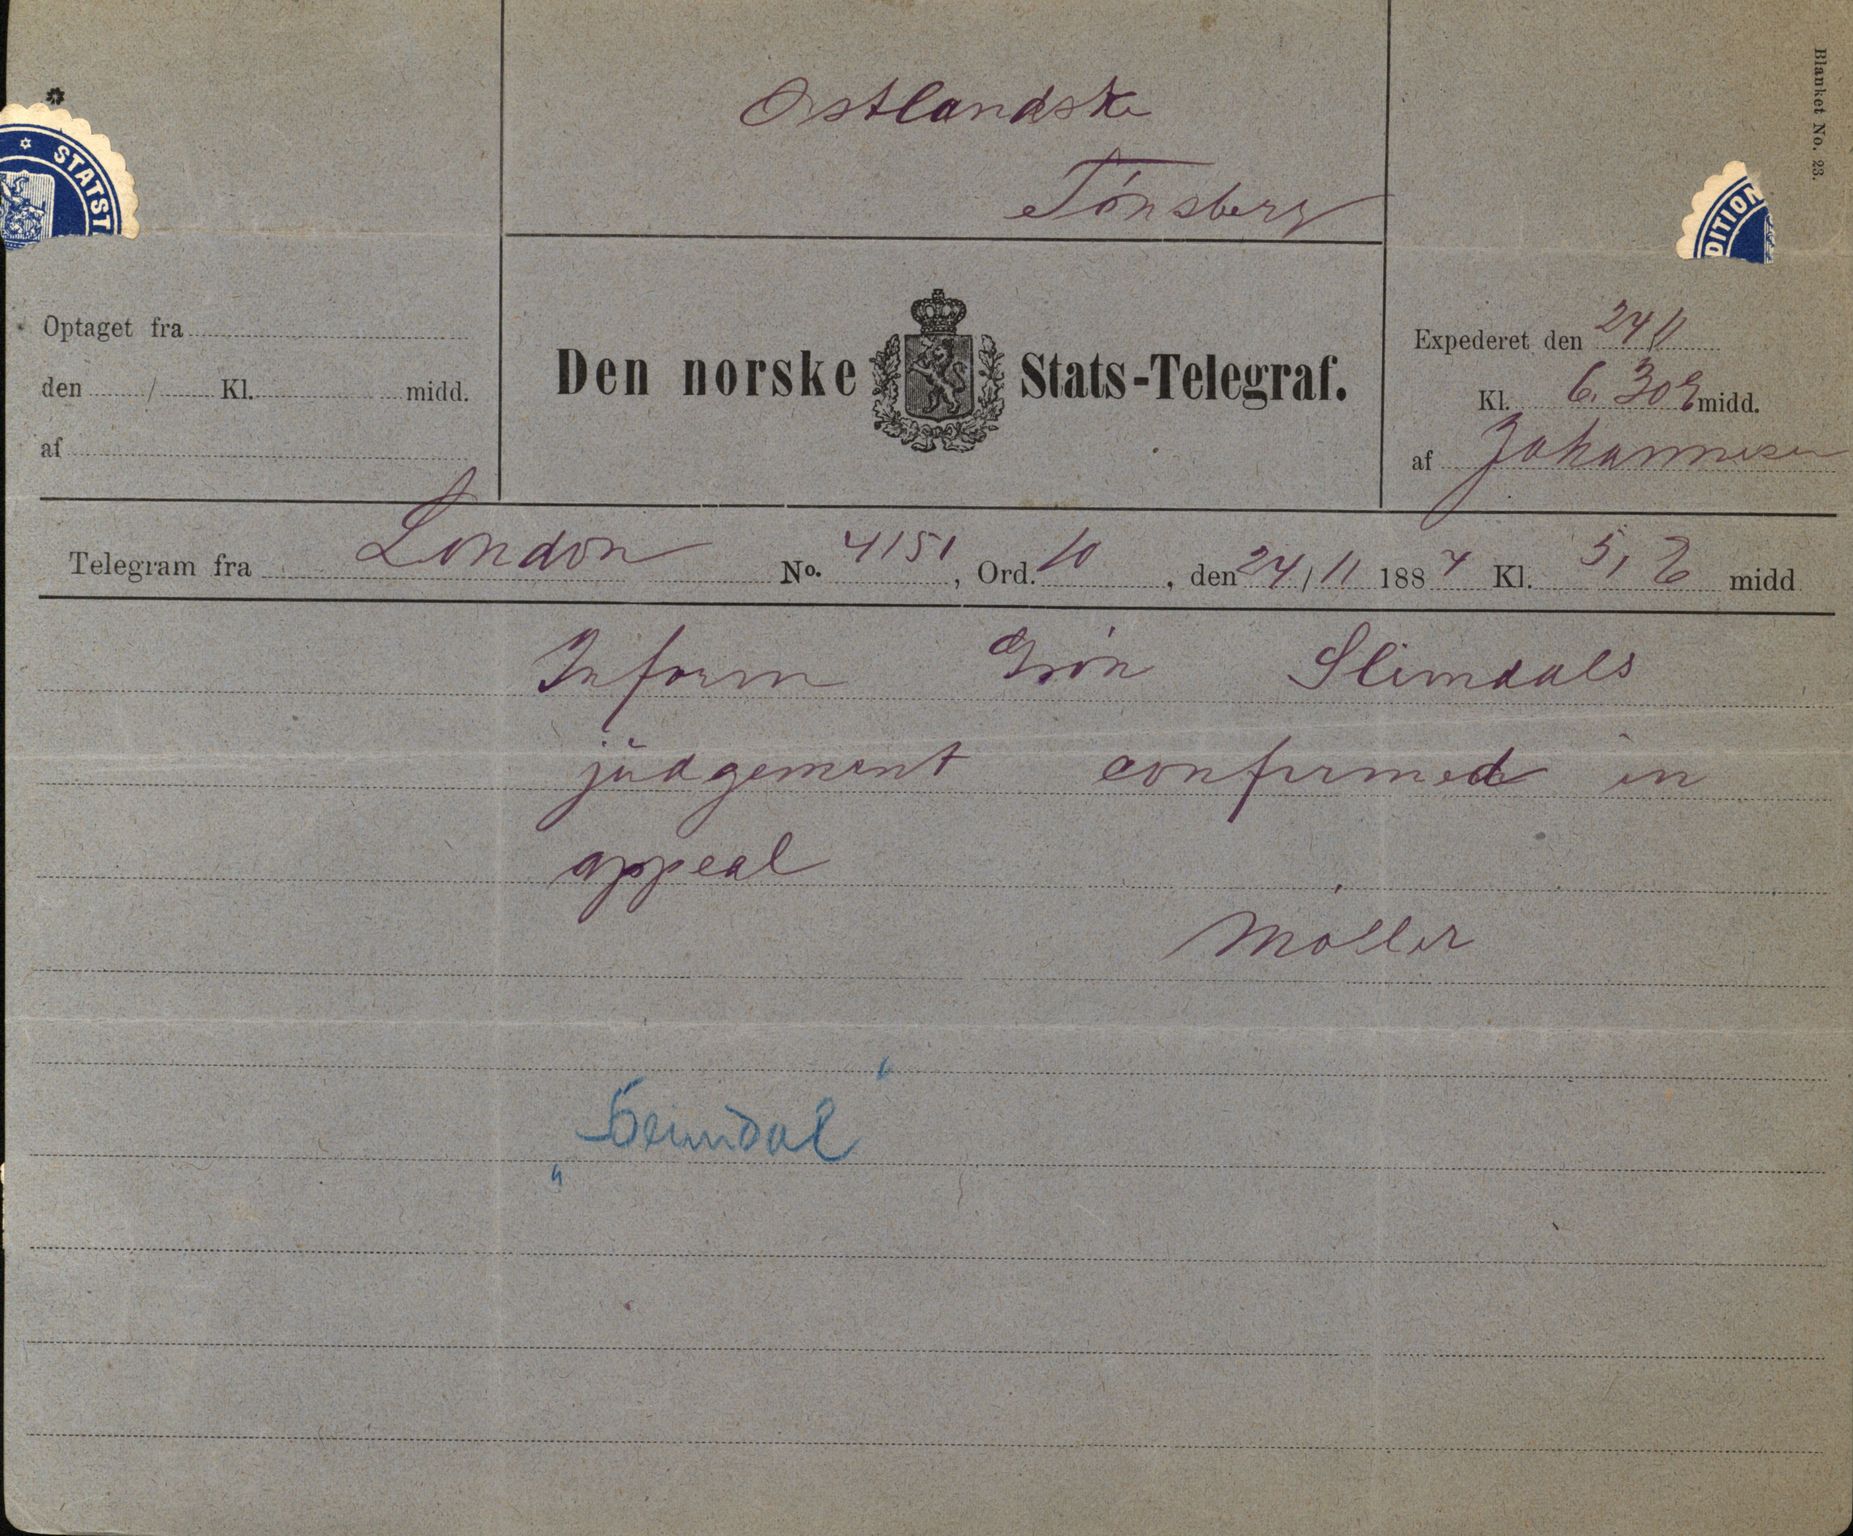 Blanket No. 23.
Ostlandske
Tønsberg
STATST
DITION
Optaget fra
den / Kl. midd.
af
Den norske Stats-Telegraf.
Expederet den 24/11
Kl. 6.30 E midd.
af Johannesen
Telegram fra London No. 4151, Ord. 10, den 24/11 1884 Kl. 5, E midd
Inform Grøn Slimdals
judgement confirmed in
appeal
Møller
„Heimdal“